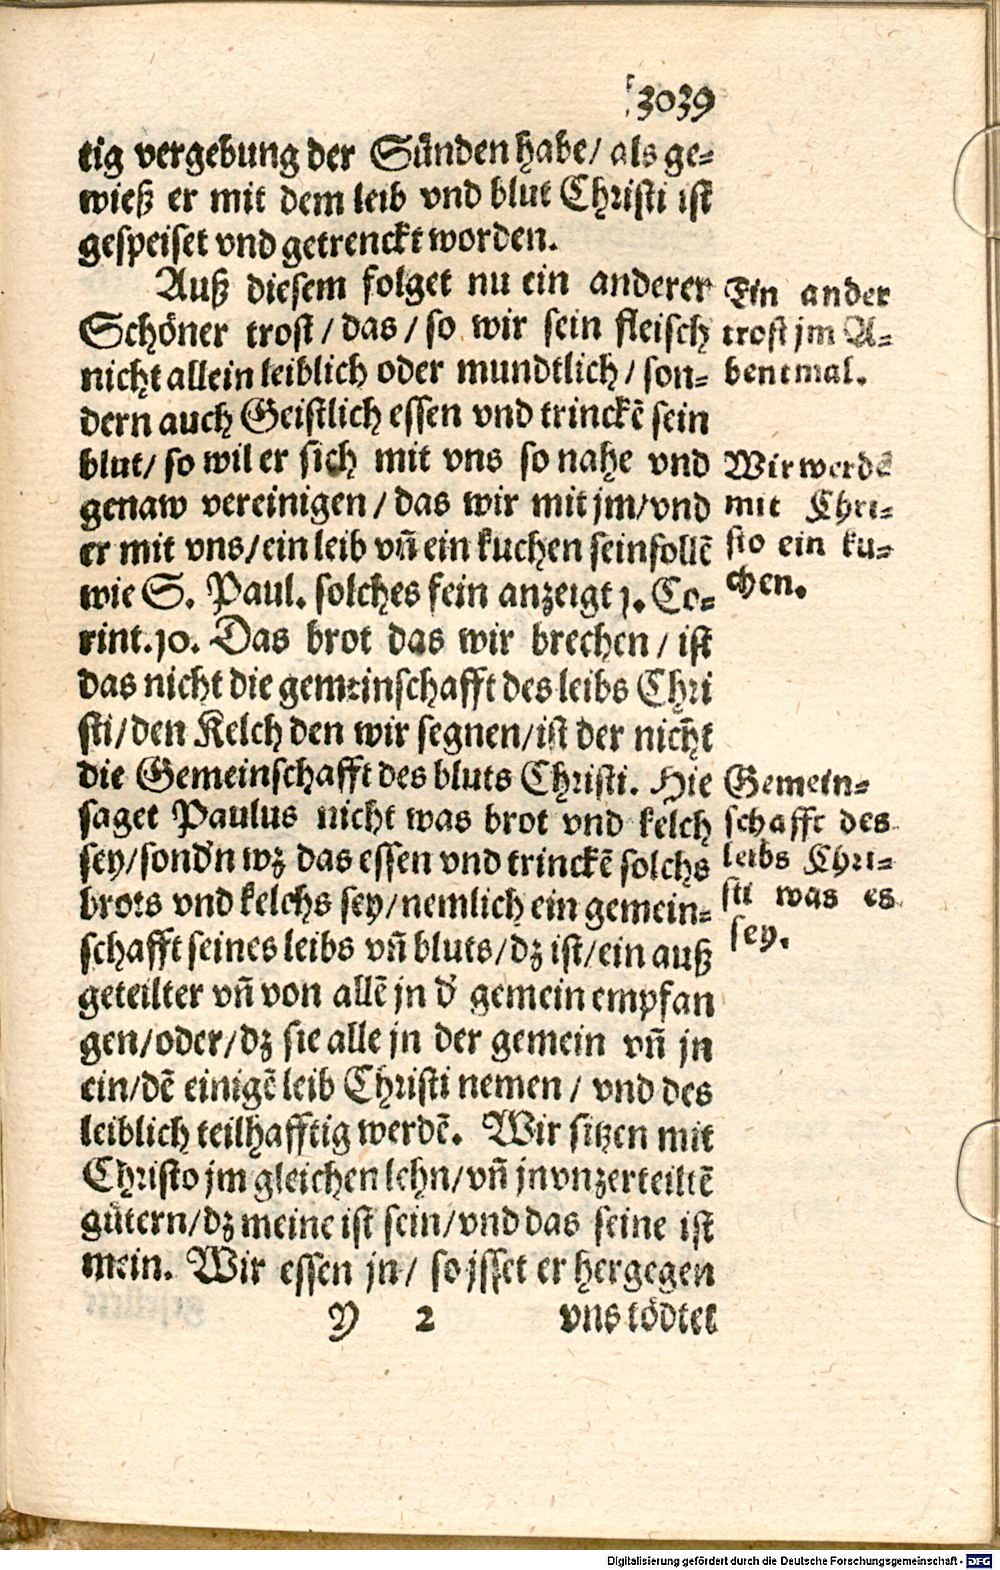 3039
tig vergebung der Sünden habe/ als ge-
wieß er mit dem leib vnd blut Christi ist
gespeiset vnd getrenckt worden.
Auß diesem folget nu ein anderer
Schöner trost/das/so wir sein fleisch
nicht allein leiblich oder mundtlich/son-
dern auch Geistlich essen vnd trinckē sein
blut/ so wil er sich mit vns so nahe vnd
genaw vereinigen/das wir mit jm/vnd
er mit vns/ein leib vñ ein kuchen sein sollē
wie S. Paul. solches fein anzeigt 1. Co-
rint. 10. Das brot das wir brechen/ ist
das nicht die gemeinschafft des leibs Chri
sti/den Kelch den wir segnen/ist der nicht
die Gemeinschafft des bluts Christi. Hie
saget Paulus nicht was brot vnd kelch
sey/sond'n wz das essen vnd trinckē solchs
brots vnd kelchs sey/nemlich ein gemein-
schafft seines leibs vñ bluts/dz ist/ein auß
geteilter vñ von allē jn d' gemein empfan
gen/oder/dz sie alle jn der gemein vñ jn
ein/dē einigē leib Christi nemen/ vnd des
leiblich teilhafftig werdē. Wir sitzen mit
Christo jm gleichen lehn/vñ jn vnzerteiltē
gütern/dz meine ist sein/vnd das seine ist
mein. Wir essen jn/ so jsset er hergegen
Y 2 vns tödtet
Ein ander
trost jm A-
bentmal.
Wir werdē
mit Chri-
sto ein ku-
chen.
Gemein-
schafft des
leibs Chri-
sti was es
sey.
Digitalisierung gefördert durch die Deutsche Forschungsgemeinschaft - DFG